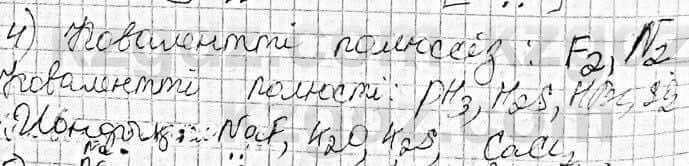 4) Ковалентті полюссіз: F2, N2
Ковалентті полюсті: pH3, H2S,
Иондық: NaF, K2O, K2S, CaCl2